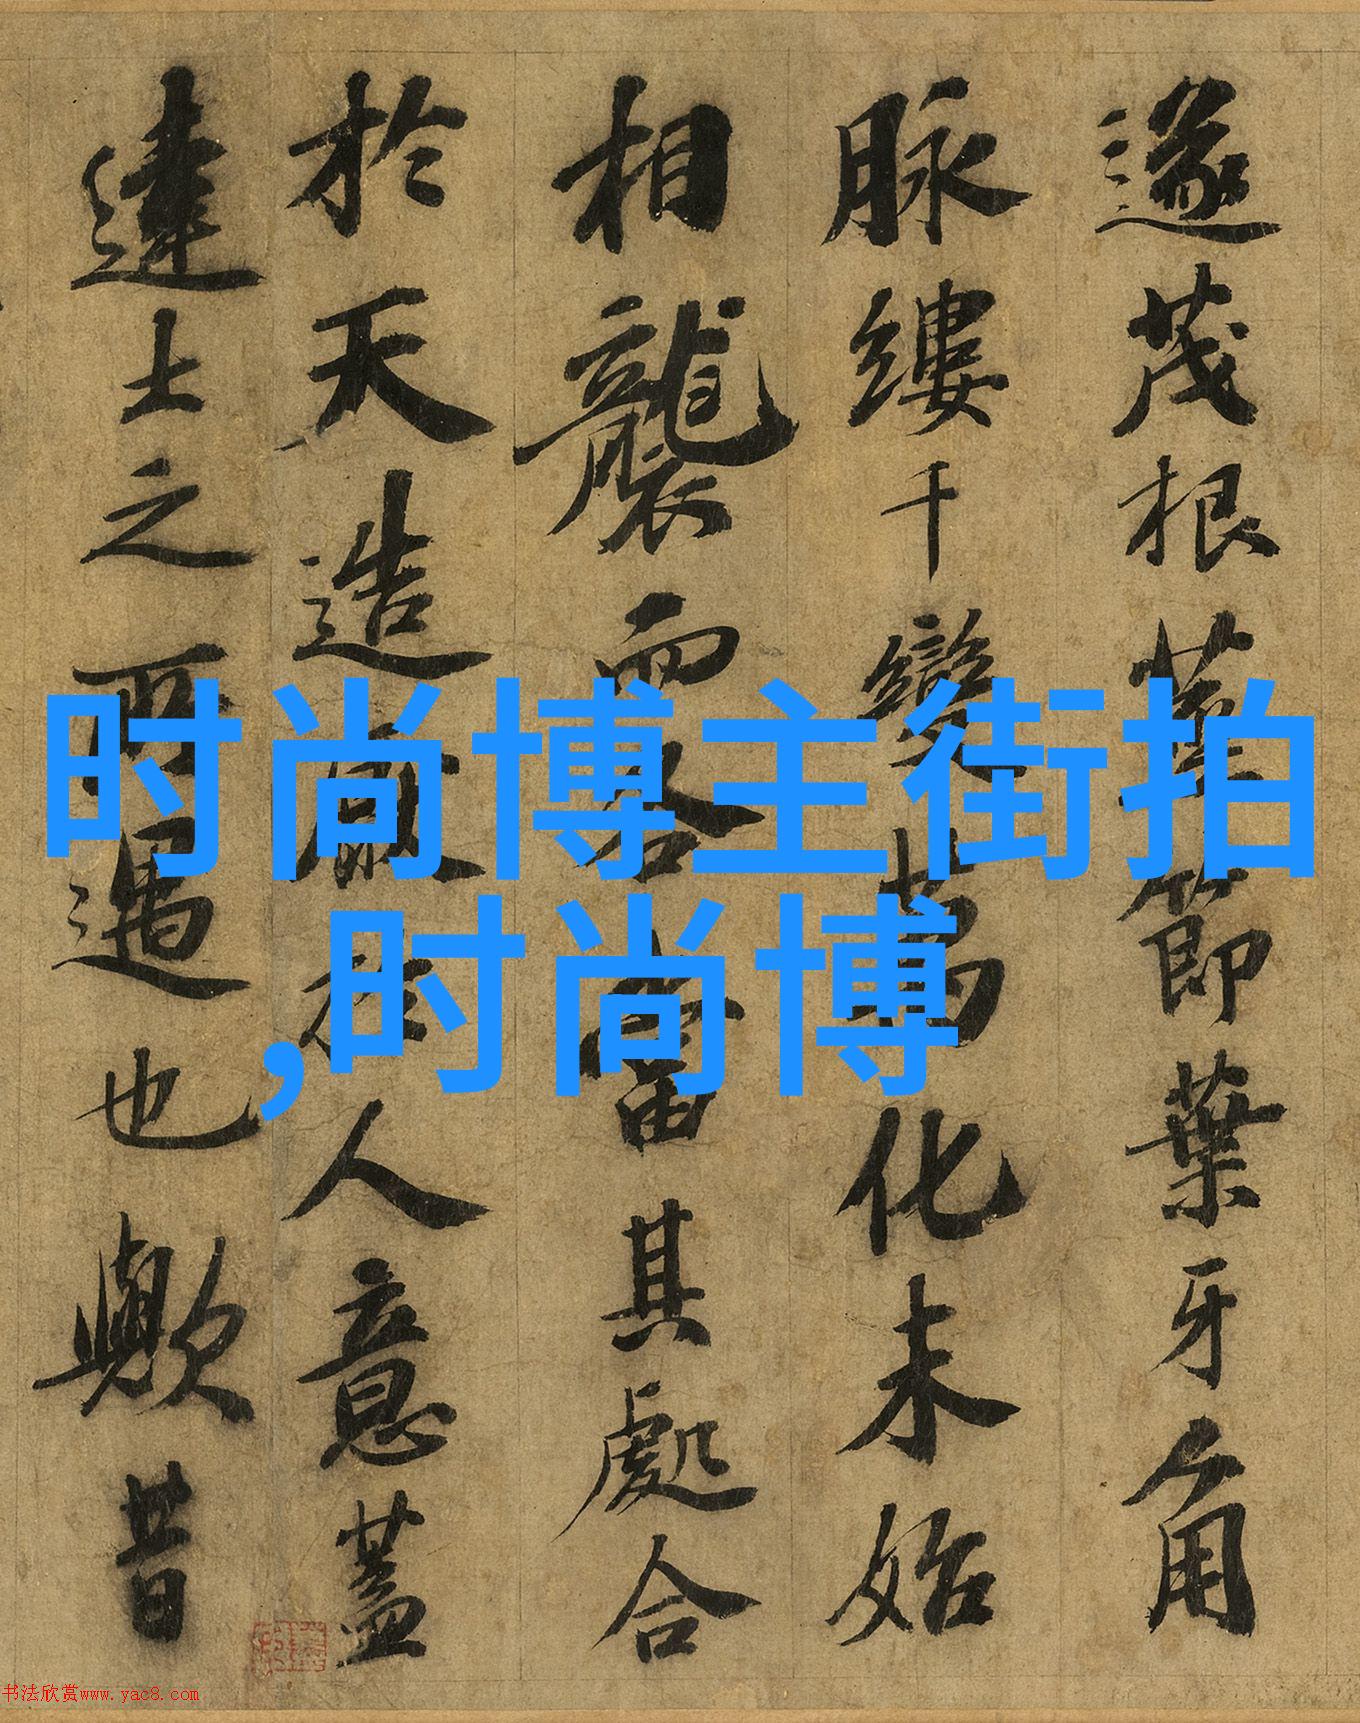 遂茂根莖節葉牙角
脉縷千變萬化未始
相襲而各當其處合
於天造厭於人意蓋
達士之所遇也歟昔
时尚博主街拍
,时尚博
书法欣赏www.yac8.com